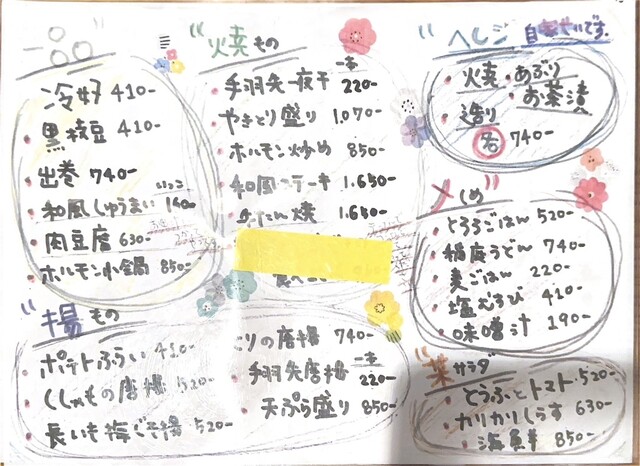 一品
冷奴 410-
黒枝豆 410-
出巻 740-
いっこ
和風しゅうまい 160-
肉豆腐 630-
ホルモン小鍋 850-
"焼もの"
一本
手羽先一夜干 220-
やきとり盛り 1,070-
ホルモン炒め 850-
和風ステーキ 1,650-
牛たん焼 1,650-
"ヘレジ 自家せいです。
焼・あぶり
造り・お茶漬
各 740-
"メしめ"
とろろごはん 520-
稲庭うどん 740-
麦ごはん 220-
塩むすび 410-
味噌汁 190-
"揚もの
ポテトふらい 410-
ししゃもの唐揚 520-
長いも梅しそ揚 520-
とりの唐揚 740-
一本
手羽先唐揚 220-
天ぷら盛り 850-
"菜サラダ"
とうふとトマト 520-
カリカリしらす 630-
海鮮 850-